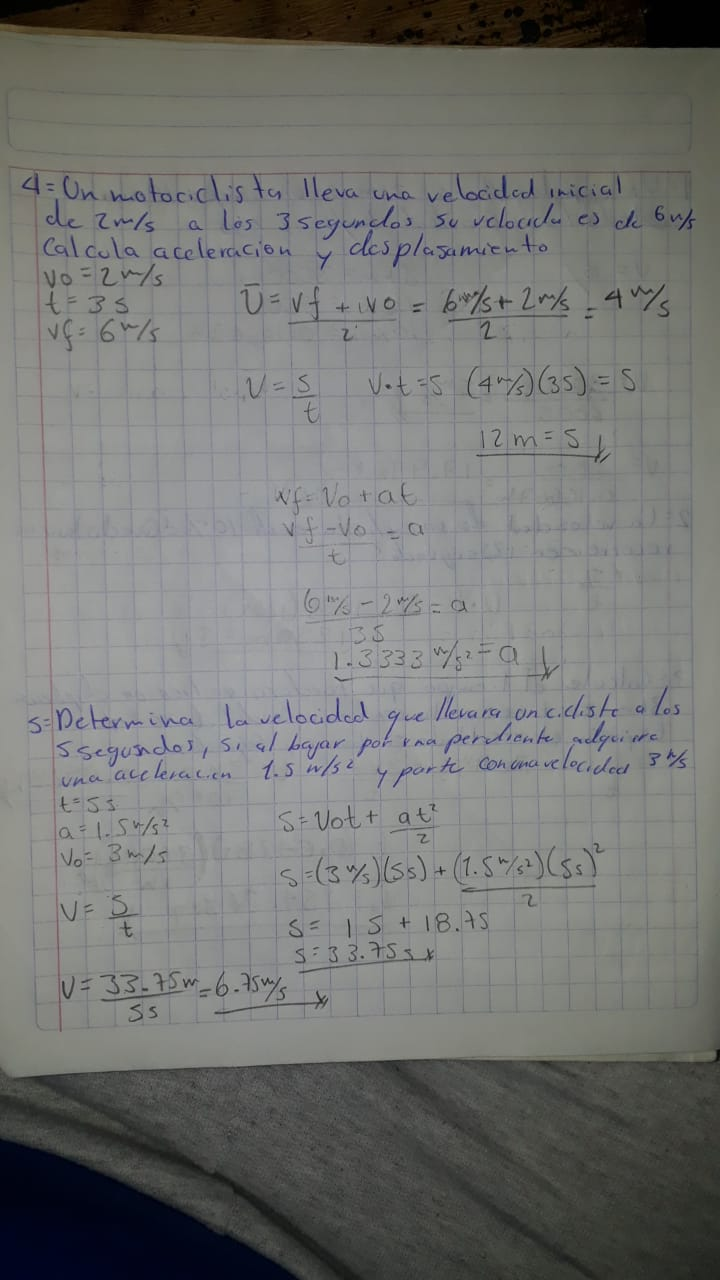 4= Un motociclista lleva una velocidad inicial
de 2m/s a los 3 segundos su velocida es de 6m/s
Calcula aceleracion y desplasamiento
vo = 2 m/s
t = 3 s
vf = 6 m/s
Ū = vf + vo / 2 = 6 m/s + 2 m/s / 2 = 4 m/s
V = S / t   V•t = S   (4 m/s)(3S) = S
12 m = S
vf = Vo + at
vf - Vo / t = a
6 m/s - 2 m/s / 3S = a
1.3333 m/s² = a
5= Determina la velocidad que llevara un ciclista a los
5 segundos, si al bajar por una pendiente adquiere
una aceleracion 1.5 m/s² y parte con una velocidad 3 m/s
t = 5 s
a = 1.5 m/s²
Vo = 3 m/s
V = S / t
S = Vot + at² / 2
S = (3 m/s)(5s) + (1.5 m/s²)(5s)² / 2
S = 15 + 18.75
S = 33.75 s
V = 33.75m / 5s = 6.75 m/s